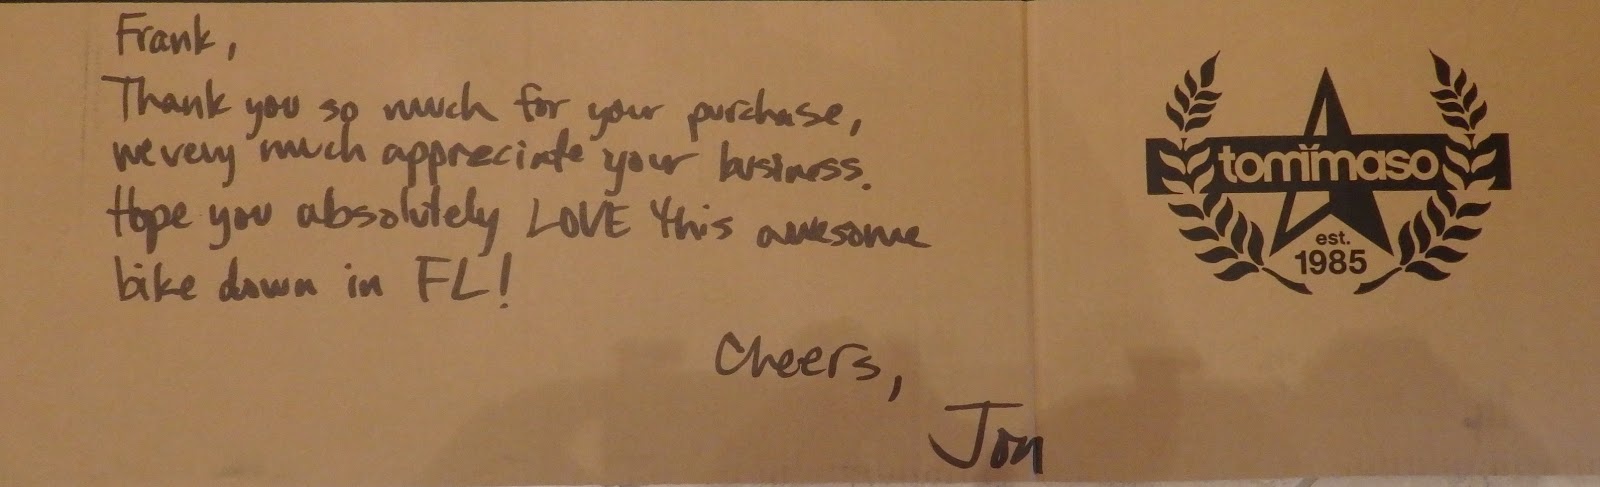 Frank,
Thank you so much for your purchase,
we very much appreciate your business.
Hope you absolutely LOVE this awesome
bike down in FL!
Cheers,
Jon
tommaso
est.
1985